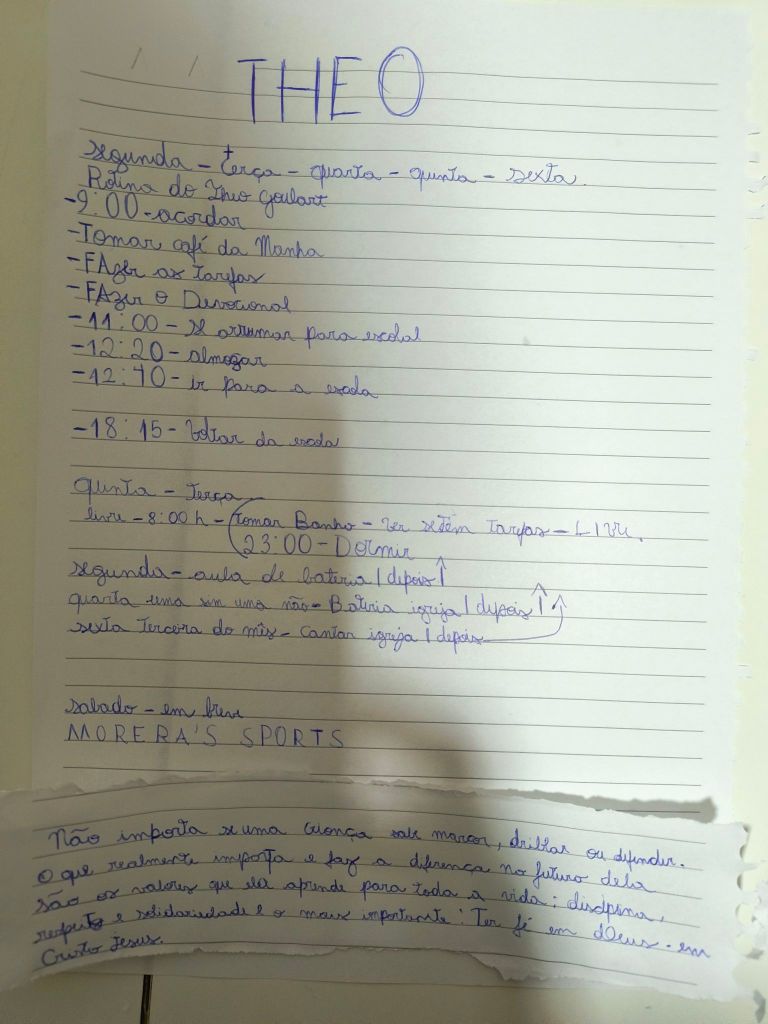 THEO
segunda - terça - quarta - quinta - sexta.
Rotina do Theo Goulart
-9:00 - acordar
-Tomar café da Manha
-FAzer as tarefas
-FAzer o Devocional
-11:00 - se arrumar para escolal
-12:20 - almoçar
-12:40 - ir para a escola
-18:15 - Voltar da escola
quinta - Terça
livre - 8:00 h - Tomar Banho - ver se têm Tarefas - LIVRE.
23:00 - Dormir
segunda - aula de bateria | depois ↑
quarta uma sim uma não - Bateria igreja | depois ↑
sexta Terceira do mês - cantar igreja | depois
sabado - em breve
MORERA'S SPORTS
Não importa se uma criança sabe marcar, driblar ou defender.
O que realmente importa e faz a diferença no futuro dela
são os valores que ela aprende para toda a vida: disciplina,
respeito e solidariedade e o mais importante: Ter fé em dOeus. em
Cristo Jesus.